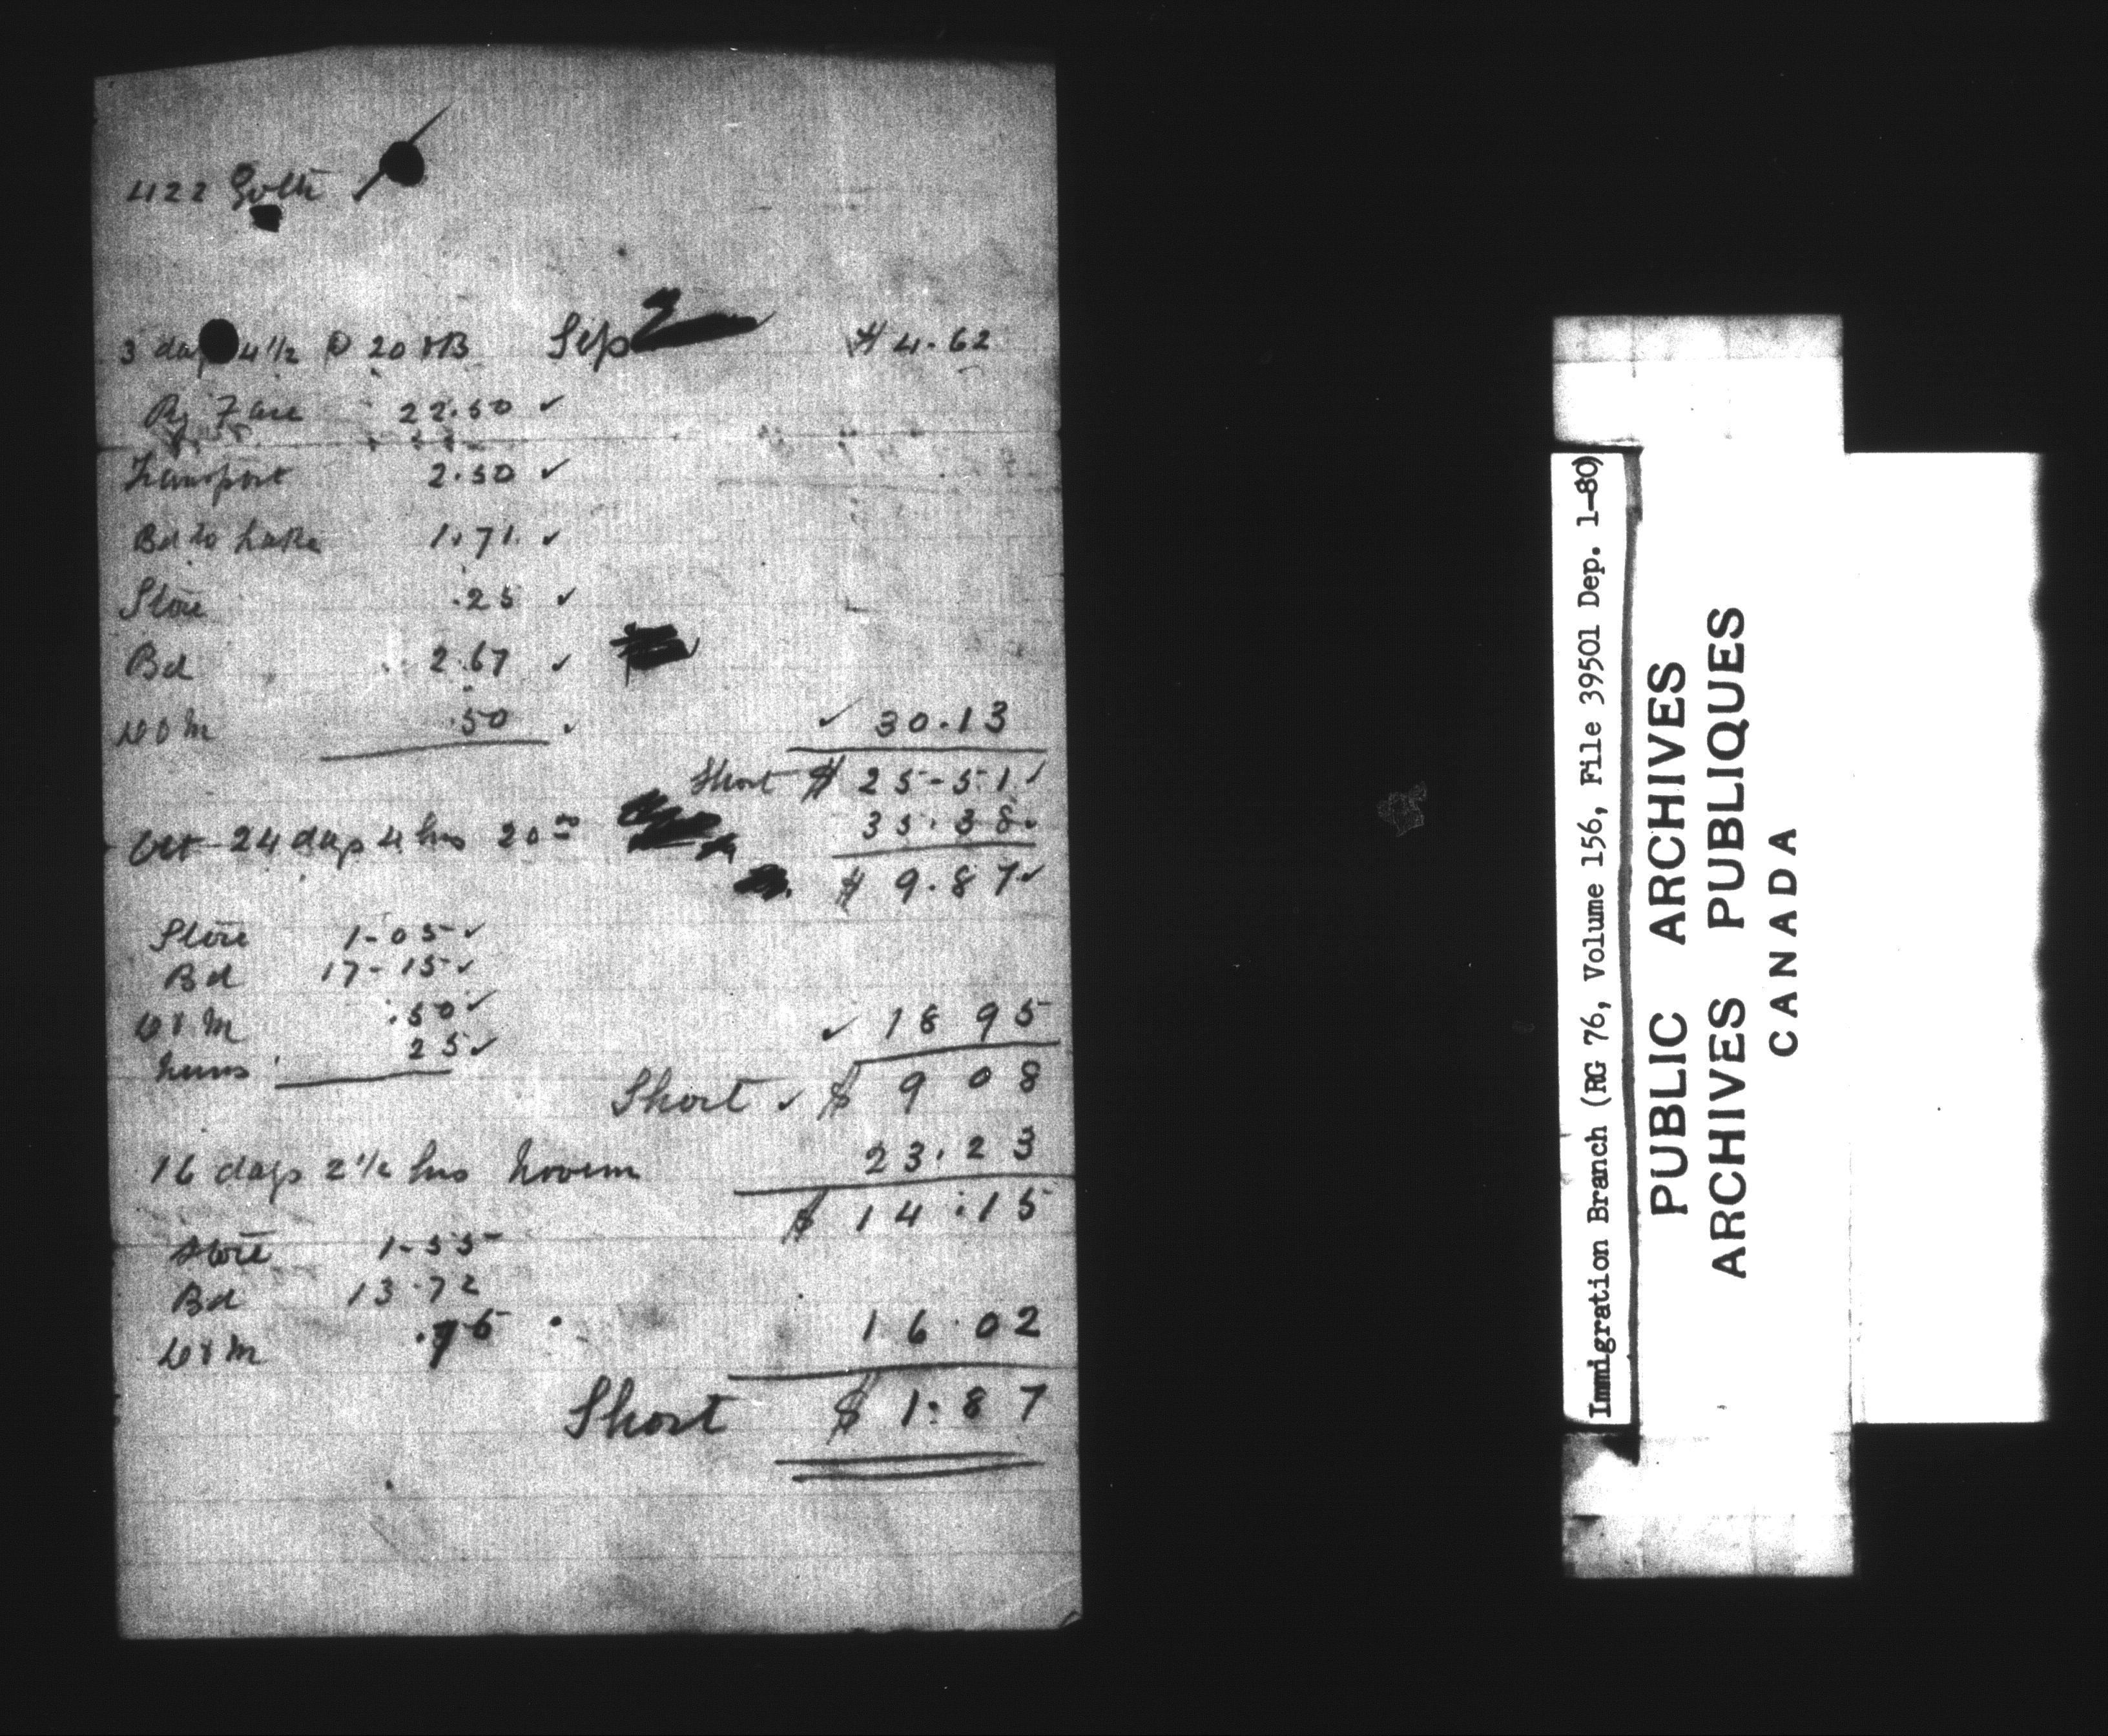 422 Goltz
3 days 4 1/2 @ 20 & B Sep $ 4.62
Ry Fare 22.50 ✓
Transport 2.50 ✓
Bd to Lake 1.71. ✓
Store .25 ✓
Bd 2.67 ✓
D & M .50 ✓ ✓ 30.13
Short $ 25-51 ✓
Oct 24 days 4 hrs 20.00 35.38.
$ 9.87 ✓
Store 1-05 ✓
Bd 17-15 ✓
D & M .50 ✓ ✓ 18 95
25 ✓
Short ✓ $ 9 08
16 days 2 1/2 hrs Novem 23.23
$ 14.15
Store 1-55
Bd 13.72
D & M .75 16.02
Short $ 1.87
Immigration Branch (RG 76, Volume 156, File 39501 Dep. 1-80)
PUBLIC ARCHIVES
ARCHIVES PUBLIQUES
CANADA